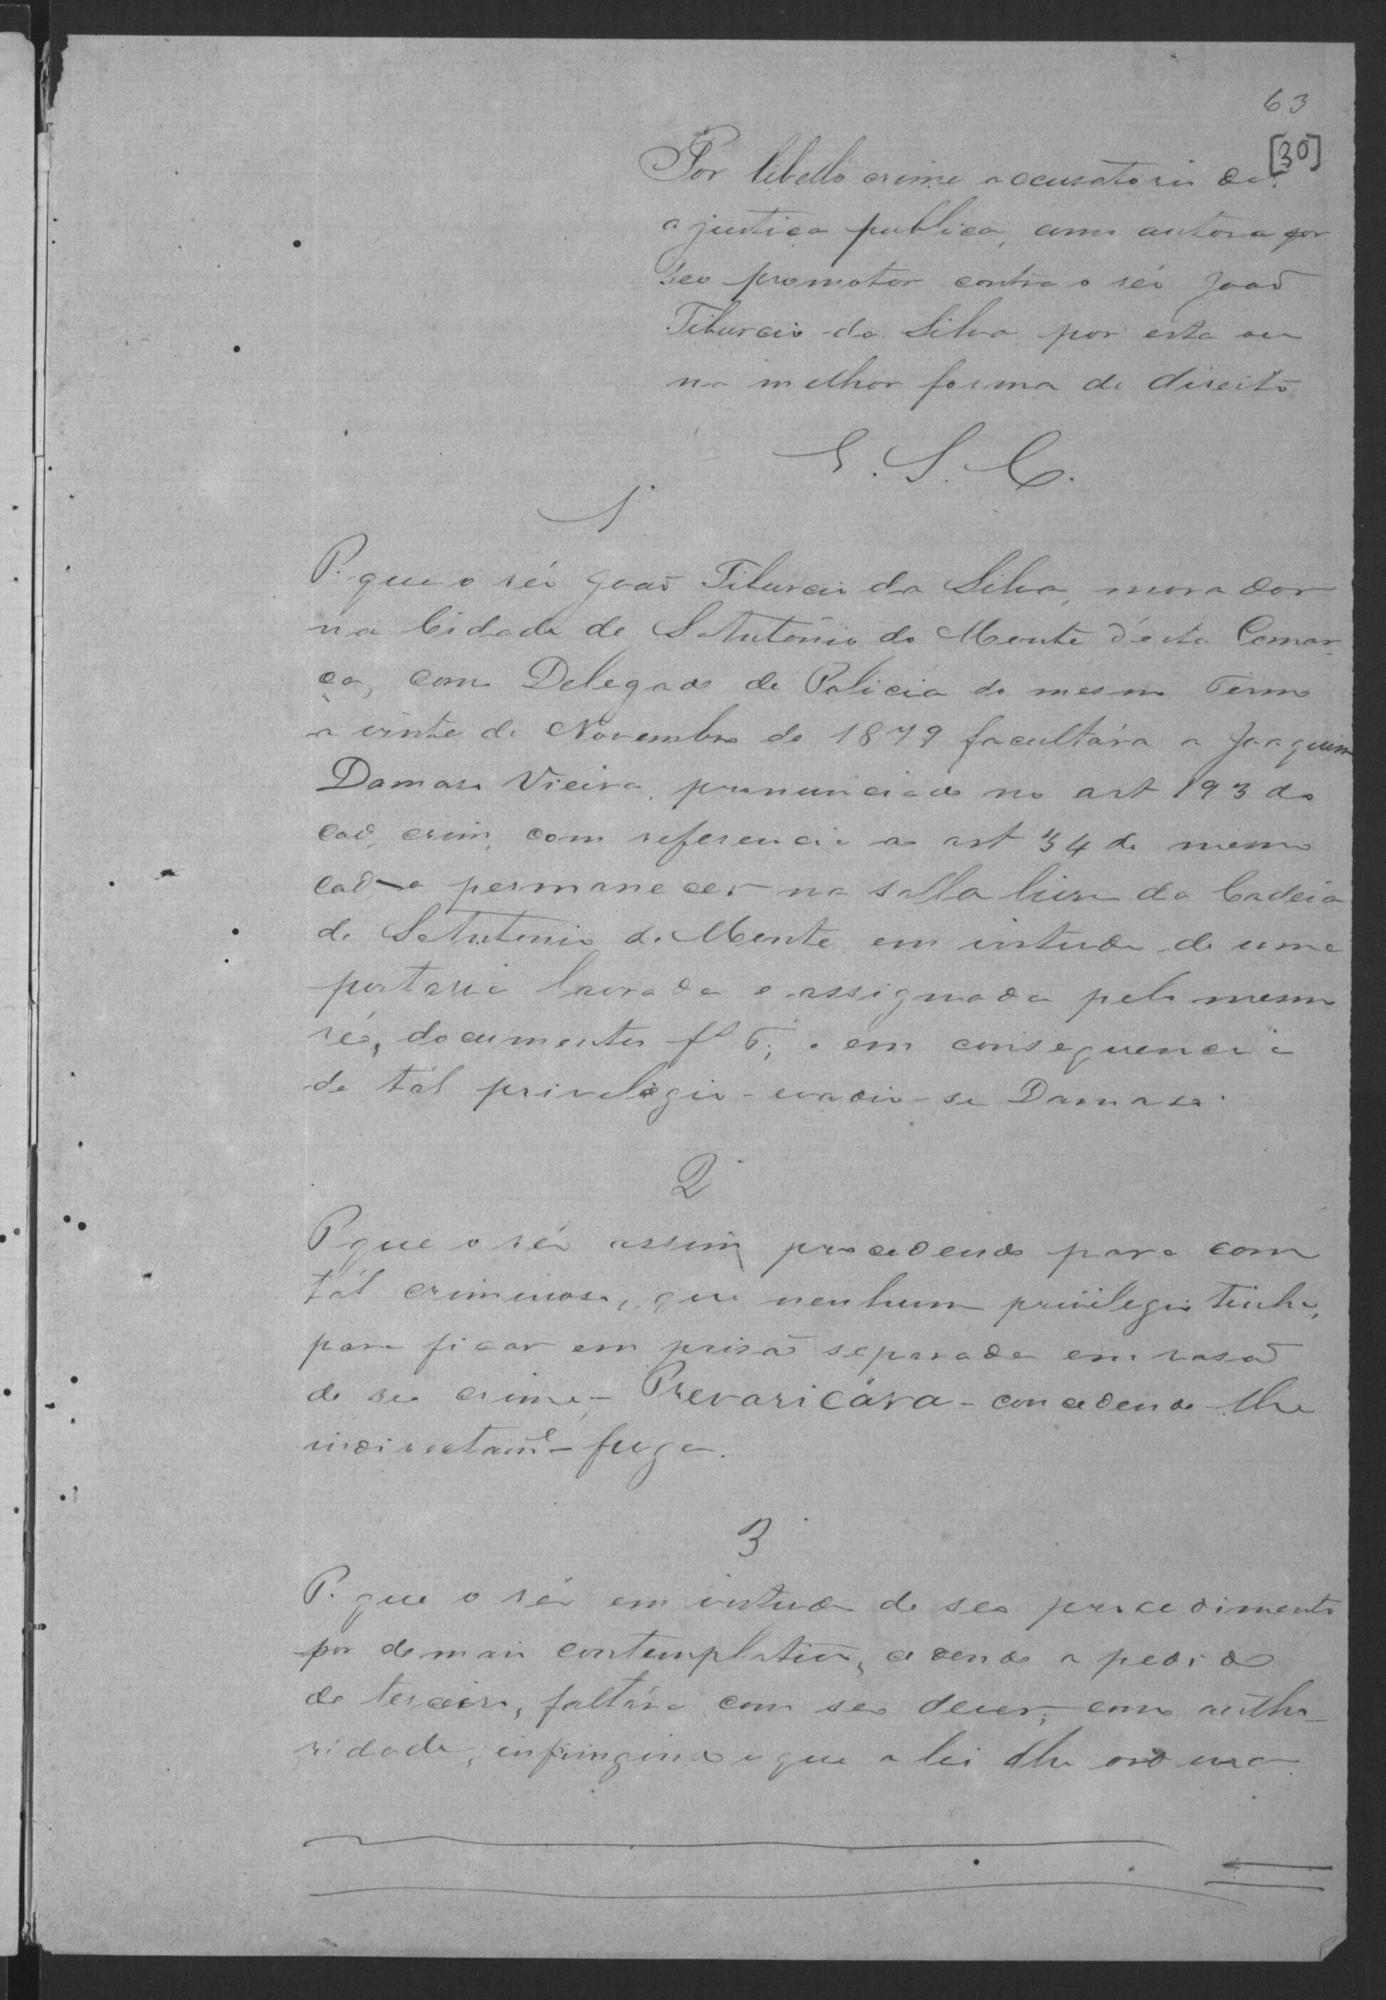 63
[30]
Por libello crime accusatorio diz
a justiça publica, como autora por
seo promotor contra o réo João
Tiburcio da Silva por esta ou
na melhor forma de direito
E. S. C.
1º
P. que o réo João Tiburcio da Silva, morador
na Cidade de Sto Antonio do Monte d'esta Comar-
ca, como Delegado de Policia do mesmo Termo
à vinte de Novembro de 1879 facultára a Joaquim
Damaso Vieira, pronunciado no art 193 do
cod, crim, com referencia ao art 34 do mesmo
cod- a permanecer na salla livre da Cadeia
de Sto Antonio do Monte em virtude de uma
portaria lavrada e assignada pelo mesmo
réo, documento fl 6; e em consequencia
de tál privelegio - evadio-se Damaso.
2
P que o réo assim procedendo para com
tál criminoso, que nenhum privilegio tinha,
para ficar em prisão separada em rasão
de seo crime - Prevaricára - concedendo-lhe
indirectame - fuga.
3
P. que o réo em virtude de seo procedimento
por demais contemplativo, cedendo a pedido
de terceiro, faltára com seo dever, como autho-
ridade, infringindo o que a lei lhe ordena.